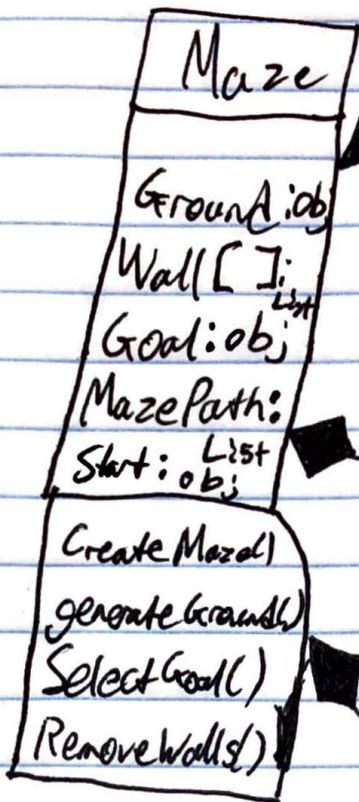 Maze
Ground:obj
Wall[ ]:
List
Goal:obj
MazePath:
List
Start:obj
CreateMaze()
generateGround()
SelectGoal()
RemoveWalls()